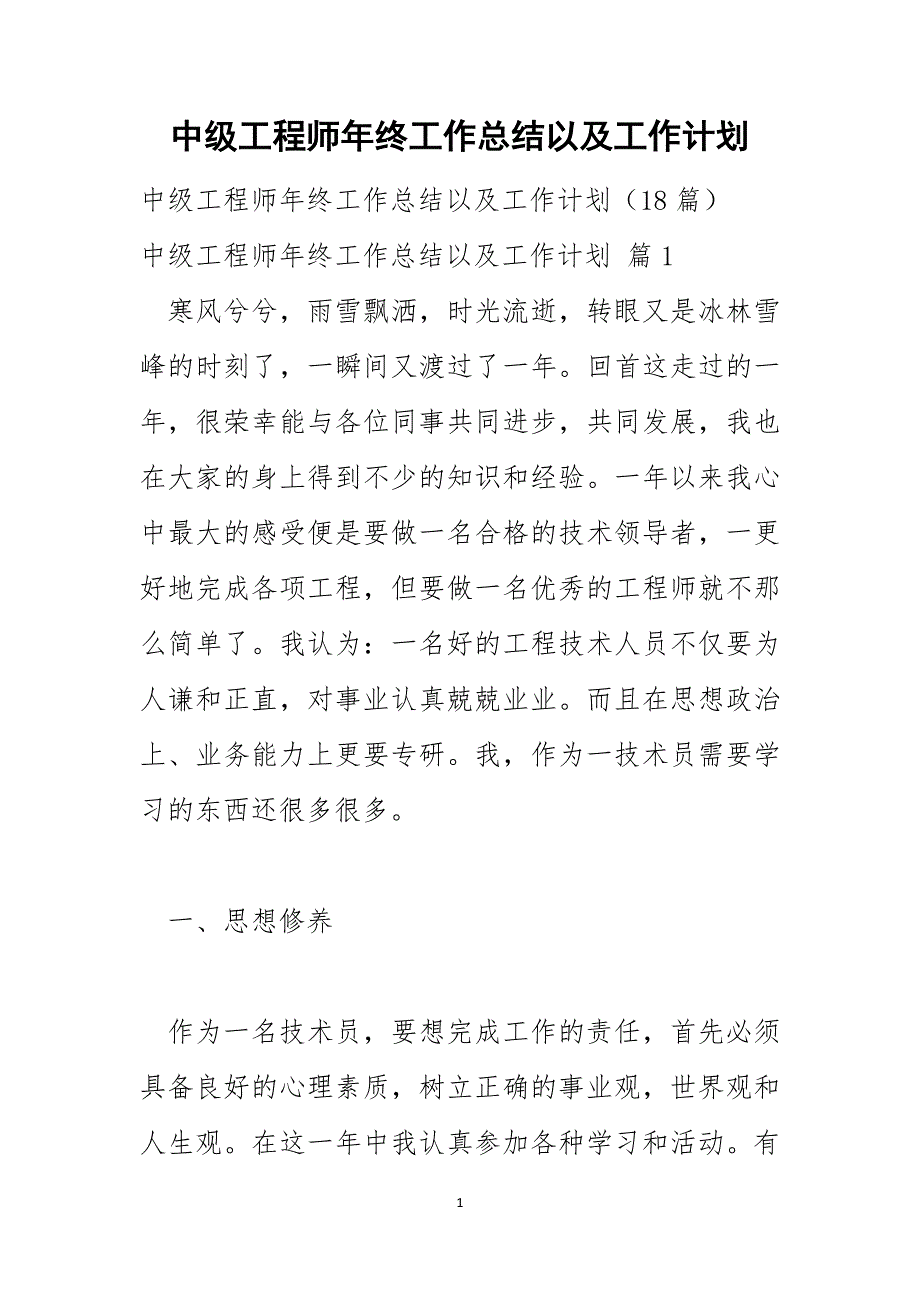 中级工程师年终工作总结以及工作计划
中级工程师年终工作总结以及工作计划（18 篇）
中级工程师年终工作总结以及工作计划 篇 1
寒风兮兮，雨雪飘洒，时光流逝，转眼又是冰林雪
峰的时刻了，一瞬间又渡过了一年。回首这走过的一
年，很荣幸能与各位同事共同进步，共同发展，我也
在大家的身上得到不少的知识和经验。一年以来我心
中最大的感受便是要做一名合格的技术领导者，一更
好地完成各项工程，但要做一名优秀的工程师就不那
么简单了。我认为：一名好的工程技术人员不仅要为
人谦和正直，对事业认真兢兢业业。而且在思想政治
上、业务能力上更要专研。我，作为一技术员需要学
习的东西还很多很多。
一、思想修养
作为一名技术员，要想完成工作的责任，首先必须
具备良好的心理素质，树立正确的事业观，世界观和
人生观。在这一年中我认真参加各种学习和活动。有
1